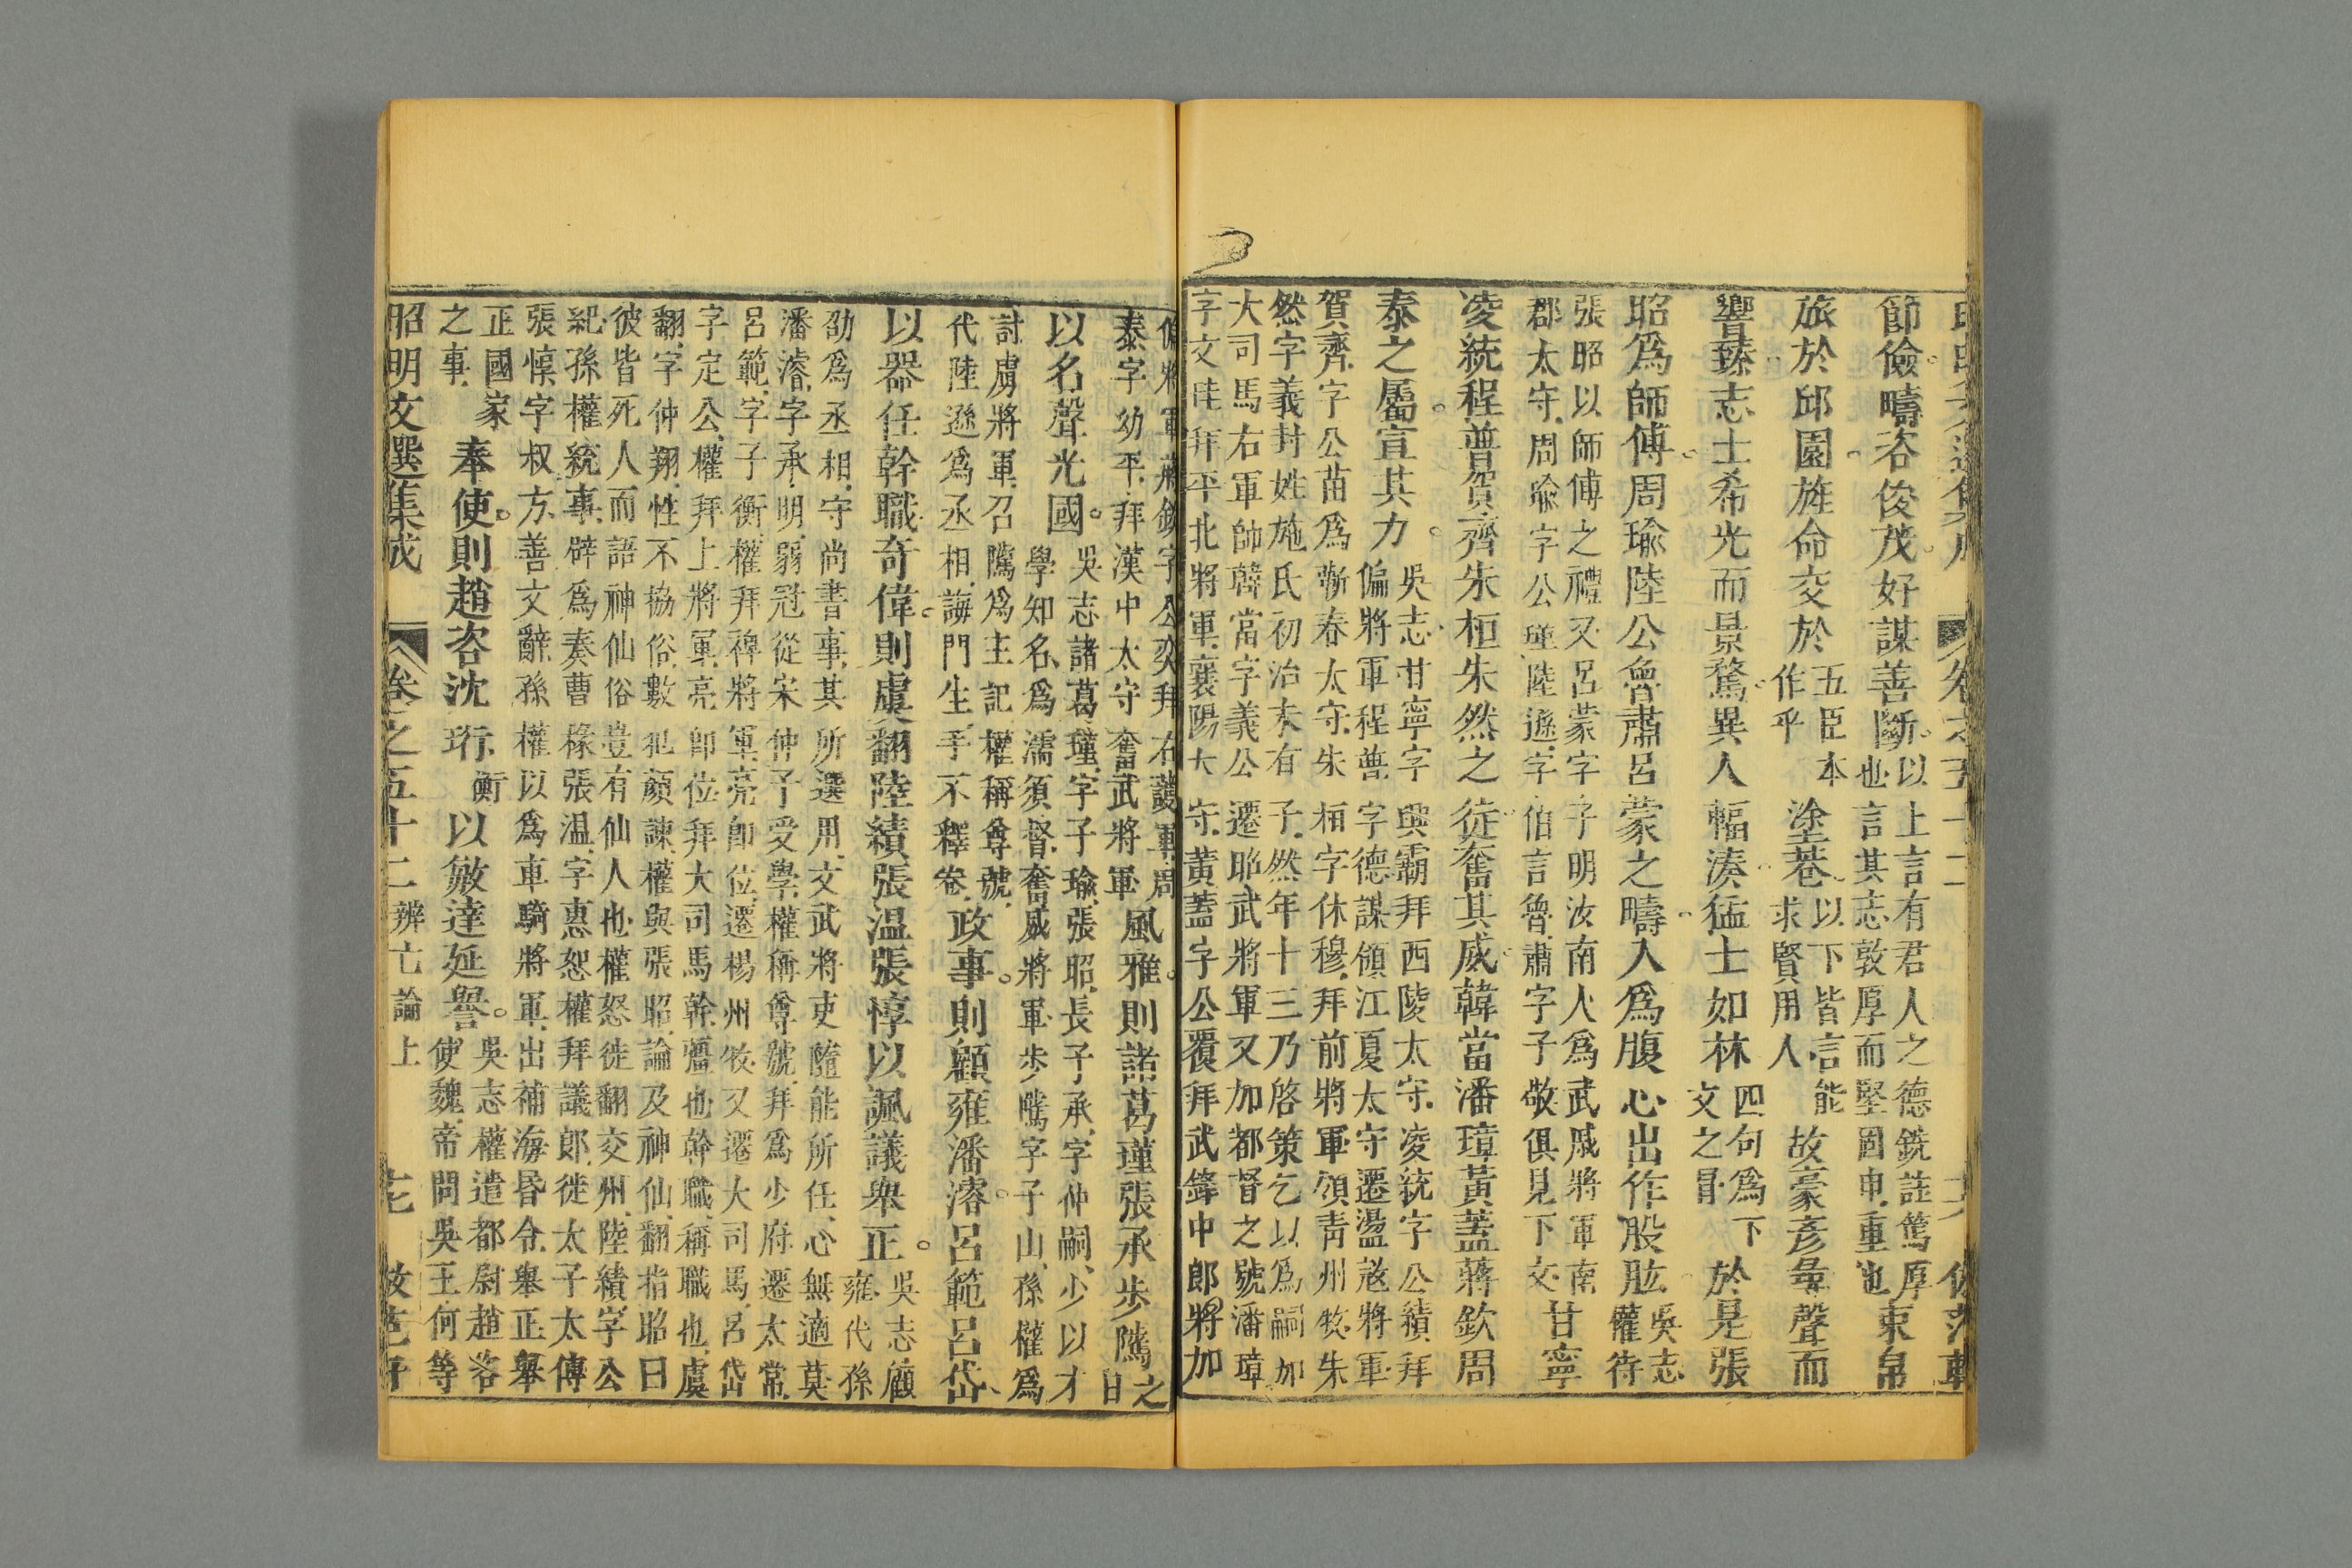 節儉疇咨俊茂好謀善斷以上言有君人之德銑註篤厚
也言其志敦厚而堅固申重也束帛
旅於邱園旌命交於五臣本
作乎塗巷以下皆言能
求賢用人故豪彥尋聲而
響臻志士希光而景騖異人輻湊猛士如林四句為下
文之冒於是張
昭爲師傅周瑜陸公魯肅呂蒙之疇入爲腹心出作股肱吳志
權待
張昭以師傅之禮又呂蒙字子明汝南人爲武威將軍南
郡太守周瑜字公瑾陸遜字伯言魯肅字子敬俱見下文甘寧
凌統程普賀齊朱桓朱然之徒奮其威韓當潘璋黃蓋蔣欽周
泰之屬宣其力吳志甘寧字興霸拜西陵太守凌統字公績拜
偏將軍程普字德謀領江夏太守遷盪寇將軍
賀齊字公苗爲蘄春太守朱桓字休穆拜前將軍領靑州牧朱
然字義封姓施氏初治未有子然年十三乃啓策乞以爲嗣加
大司馬右軍師韓當字義公遷昭武將軍又加都督之號潘璋
字文珪拜平北將軍襄陽大守黃蓋字公覆拜武鋒中郎將加
偏將軍蔣欽字公奕拜右護軍周
泰字幼平拜漢中太守奮武將軍風雅則諸葛瑾張承步隲之
以名聲光國吳志諸葛瑾字子瑜張昭長子承字仲嗣少以才
學知名爲濡須督奮威將軍步隲字子山孫權爲
討虜將軍召隲爲主記權稱尊號
代陸遜爲丞相誨門生手不釋卷政事則顧雍潘濬呂範呂岱
以器任幹職奇偉則虞翻陸績張溫張惇以諷議舉正吳志顧
雍代孫
劭爲丞相守尚書事其所選用文武將吏隨能所任心無適莫
潘濬字承明弱冠從宋仲子受學權稱尊號拜爲少府遷太常
呂範字子衡權拜裨將軍亮卽位遷楊州牧又遷大司馬呂岱
字定公權拜上將軍亮卽位拜大司馬幹彊也幹職稱職也虞
翻字仲翔性不協俗數犯顏諫權與張昭論及神仙翻指昭曰
彼皆死人而語神仙俗豈有仙人也權怒徙翻交州陸績字公
紀孫權統事辟爲奏曹椽張温字惠恕權拜議郎徙太子太傅
張惇字叔方善文辭孫權以爲車騎將軍出補海昏令舉正舉
正國家
之事奉使則趙咨沈珩衡以敏達延譽吳志權遣都尉趙咨
使魏帝問吳王何等
昭明文選集成 卷之五十二 辨亡論上